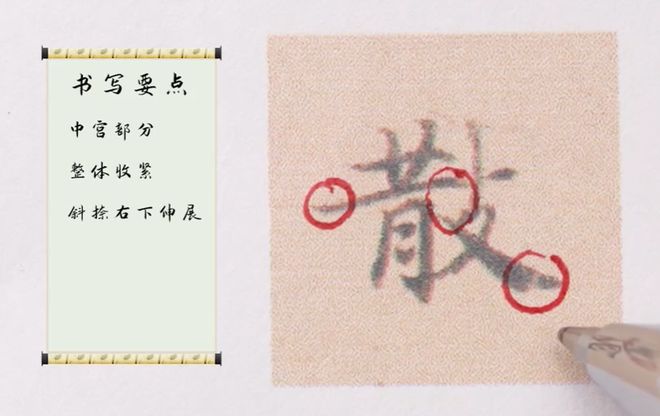 书写要点
中宫部分
整体收紧
斜捺右下伸展
散